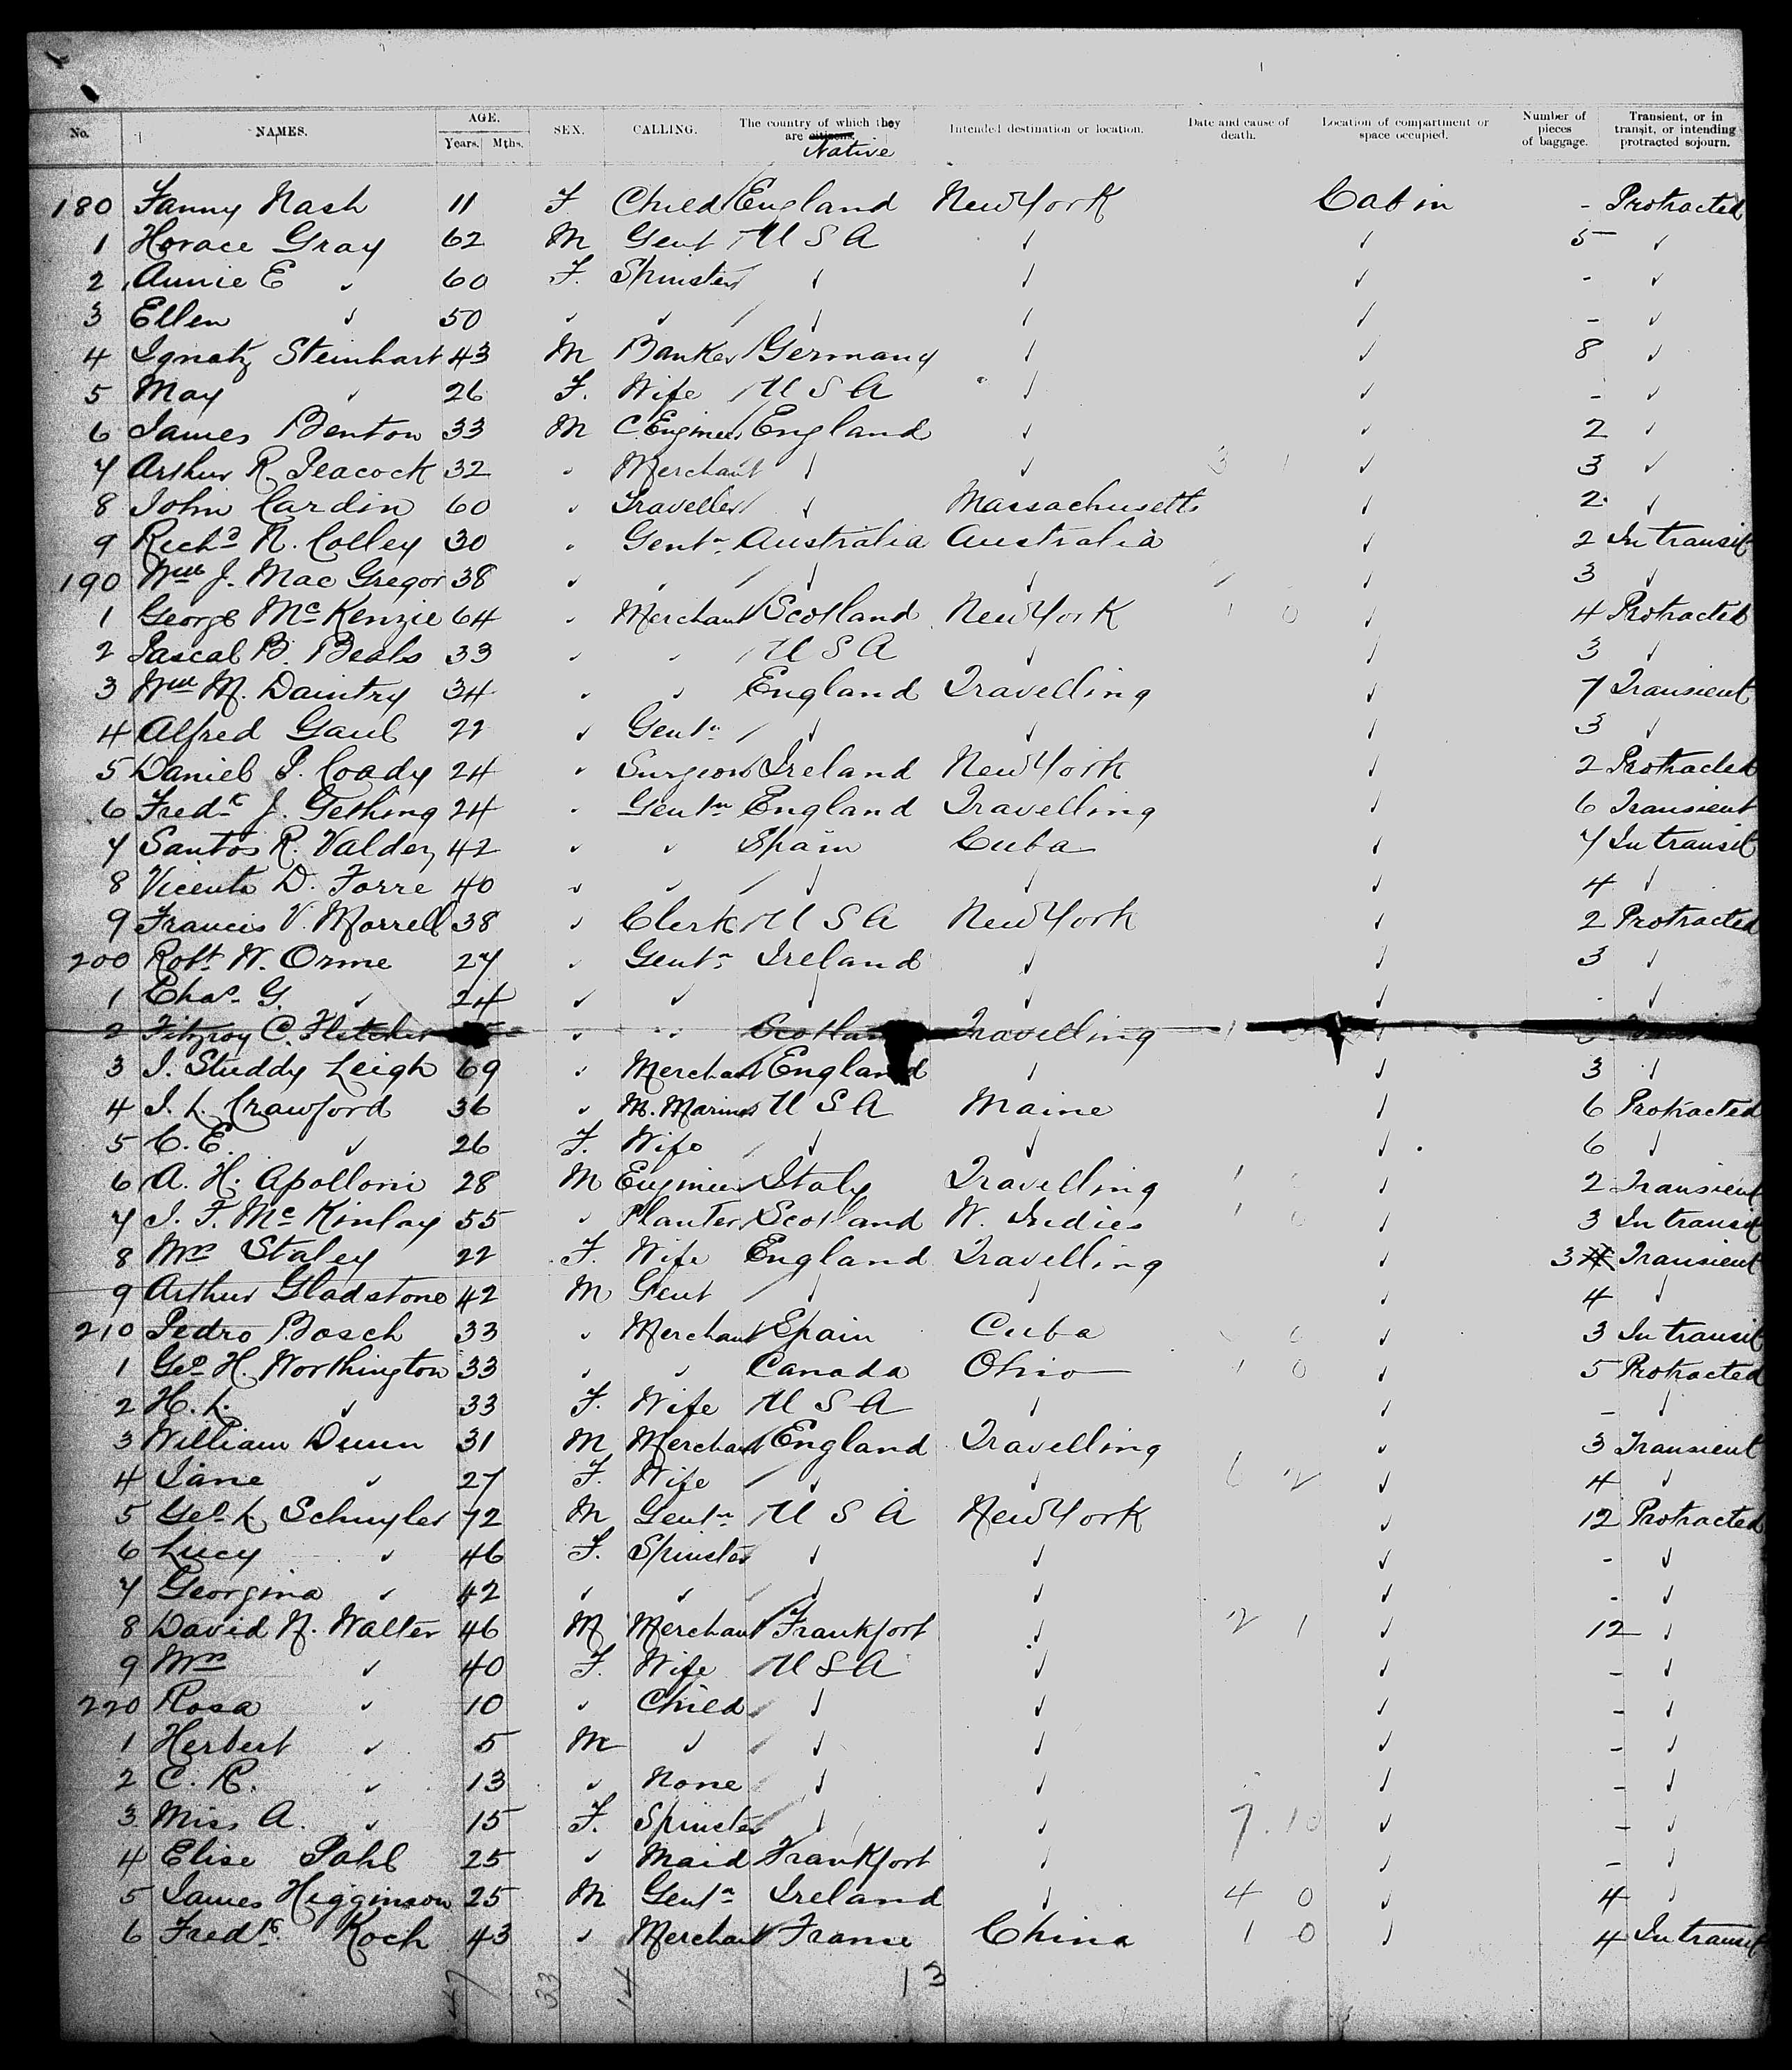 No. NAMES. AGE. Years. Mths. SEX. CALLING. The country of which they are citizens. Native Intended destination or location. Date and cause of death. Location of compartment or space occupied. Number of pieces of baggage. Transient, or in transit, or intending protracted sojourn.
180 Fanny Nash 11 F Child England New York Cabin - Protracted
1 Horace Gray 62 M Gent U S A ✓ ✓ 5 ✓
2 Annie E ✓ 60 F. Spinster ✓ ✓ ✓ - ✓
3 Ellen ✓ 50 ✓ ✓ ✓ ✓ ✓ - ✓
4 Ignatz Steinhart 43 M Banker Germany ✓ ✓ 8 ✓
5 May ✓ 26 F. Wife U S A ✓ ✓ - ✓
6 James Benton 33 M C. Engineer England ✓ ✓ 2 ✓
7 Arthur R. Peacock 32 ✓ Merchant ✓ ✓ 3 1 ✓ 3 ✓
8 John Cardin 60 ✓ Traveller ✓ Massachusetts ✓ 2 ✓
9 Richd N. Colley 30 ✓ Gentn Australia Australia ✓ 2 In transit
190 Wm J. Mac Gregor 38 ✓ ✓ ✓ ✓ ✓ 3 ✓
1 George McKenzie 64 ✓ Merchant Scotland New York 1 0 ✓ 4 Protracted
2 Pascal B. Beals 33 ✓ ✓ U S A ✓ ✓ 3 ✓
3 Wm M. Daintry 34 ✓ ✓ England Travelling ✓ 7 Transient
4 Alfred Gaul 22 ✓ Gentn ✓ ✓ ✓ 3 ✓
5 Daniel P. Coady 24 ✓ Surgeon Ireland New York ✓ 2 Protracted
6 Fredk J. Gething 24 ✓ Gentn England Travelling ✓ 6 Transient
7 Santos R. Valdez 42 ✓ ✓ Spain Cuba ✓ 7 In transit
8 Vicente D. Torre 40 ✓ ✓ ✓ ✓ ✓ 4 ✓
9 Francis V. Morrell 38 ✓ Clerk U S A New York ✓ 2 Protracted
200 Robt W. Orme 27 ✓ Gentn Ireland ✓ ✓ 3 ✓
1 Chas. G. ✓ 24 ✓ ✓ ✓ ✓ ✓ - ✓
2 Fitzroy C. Fletcher ✓ ✓ Scotland Travelling ✓
3 J. Studdy Leigh 69 ✓ Merchant England ✓ ✓ 3 ✓
4 J. L. Crawford 36 ✓ M. Mariner U S A Maine ✓ 6 Protracted
5 C. E. ✓ 26 F. Wife ✓ ✓ ✓ 6 ✓
6 A. H. Apolloni 28 M Engineer Italy Travelling ✓ 2 Transient
7 J. F. McKinlay 55 ✓ Planter Scotland W. Indies ✓ 3 In transit
8 Mrs Staley 22 F. Wife England Travelling ✓ 3 Transient
9 Arthur Gladstone 42 M Gent ✓ ✓ ✓ 4 ✓
210 Pedro Bosch 33 ✓ Merchant Spain Cuba ✓ 3 In transit
1 Geo H. Worthington 33 ✓ ✓ Canada Ohio 1 0 ✓ 5 Protracted
2 H. L. ✓ 33 F. Wife U S A ✓ ✓ - ✓
3 William Dunn 31 M Merchant England Travelling ✓ 3 Transient
4 Jane ✓ 27 F. Wife ✓ ✓ ✓ 4 ✓
5 Geo. L Schuyler 72 M Gentn U S A New York ✓ 12 Protracted
6 Lucy ✓ 46 F. Spinster ✓ ✓ ✓ - ✓
7 Georgina ✓ 42 ✓ ✓ ✓ ✓ ✓ - ✓
8 David N. Walter 46 M Merchant Frankfort ✓ 2 1 ✓ 12 ✓
9 Mrs ✓ 40 F. Wife U S A ✓ ✓ - ✓
220 Rosa ✓ 10 ✓ Child ✓ ✓ ✓ - ✓
1 Herbert ✓ 5 M ✓ ✓ ✓ ✓ - ✓
2 C. R. ✓ 13 ✓ None ✓ ✓ ✓ - ✓
3 Miss A. ✓ 15 F. Spinster ✓ ✓ 7.10 ✓ - ✓
4 Elise Pahl 25 ✓ Maid Frankfort ✓ ✓ - ✓
5 James Higginson 25 M Gentn Ireland ✓ 4 0 ✓ 4 ✓
6 Fredk. Koch 43 ✓ Merchant France China 1 0 ✓ 4 In transit
47 33 14 13